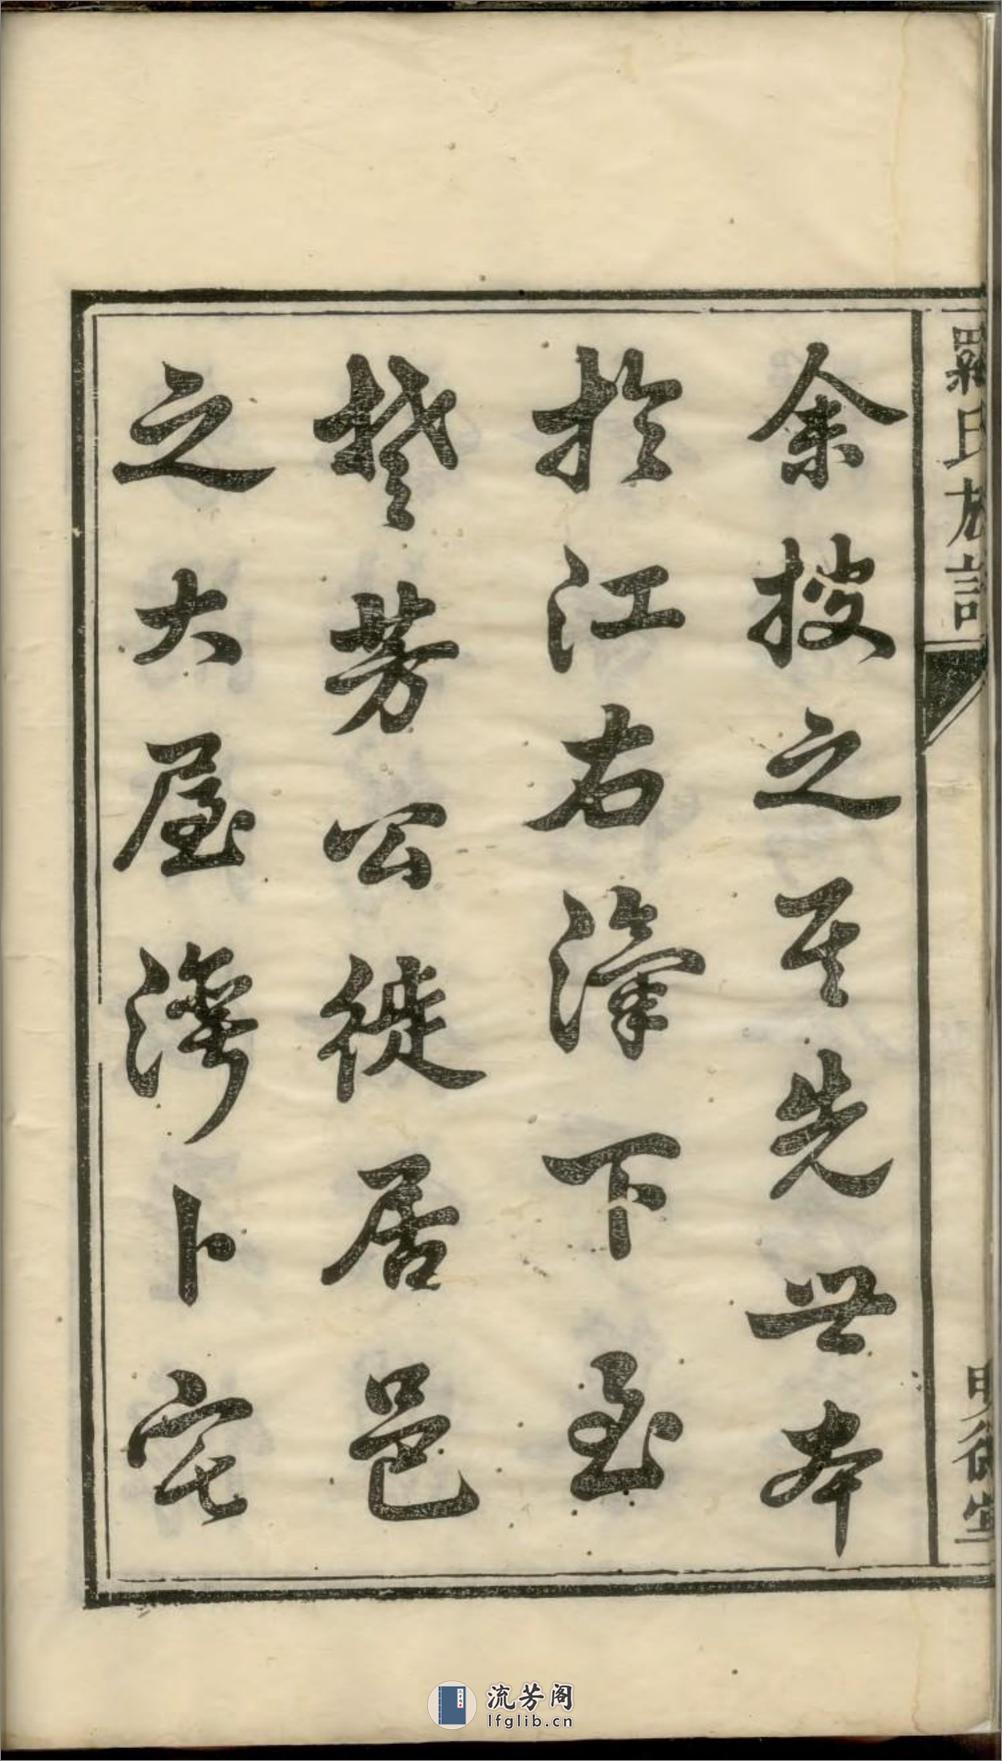 羅氏族譜
明德堂
余披之其先世本
於江右下至
楚芳公徙居邑
之大屋灣卜宅
流芳阁
lfglib.cn